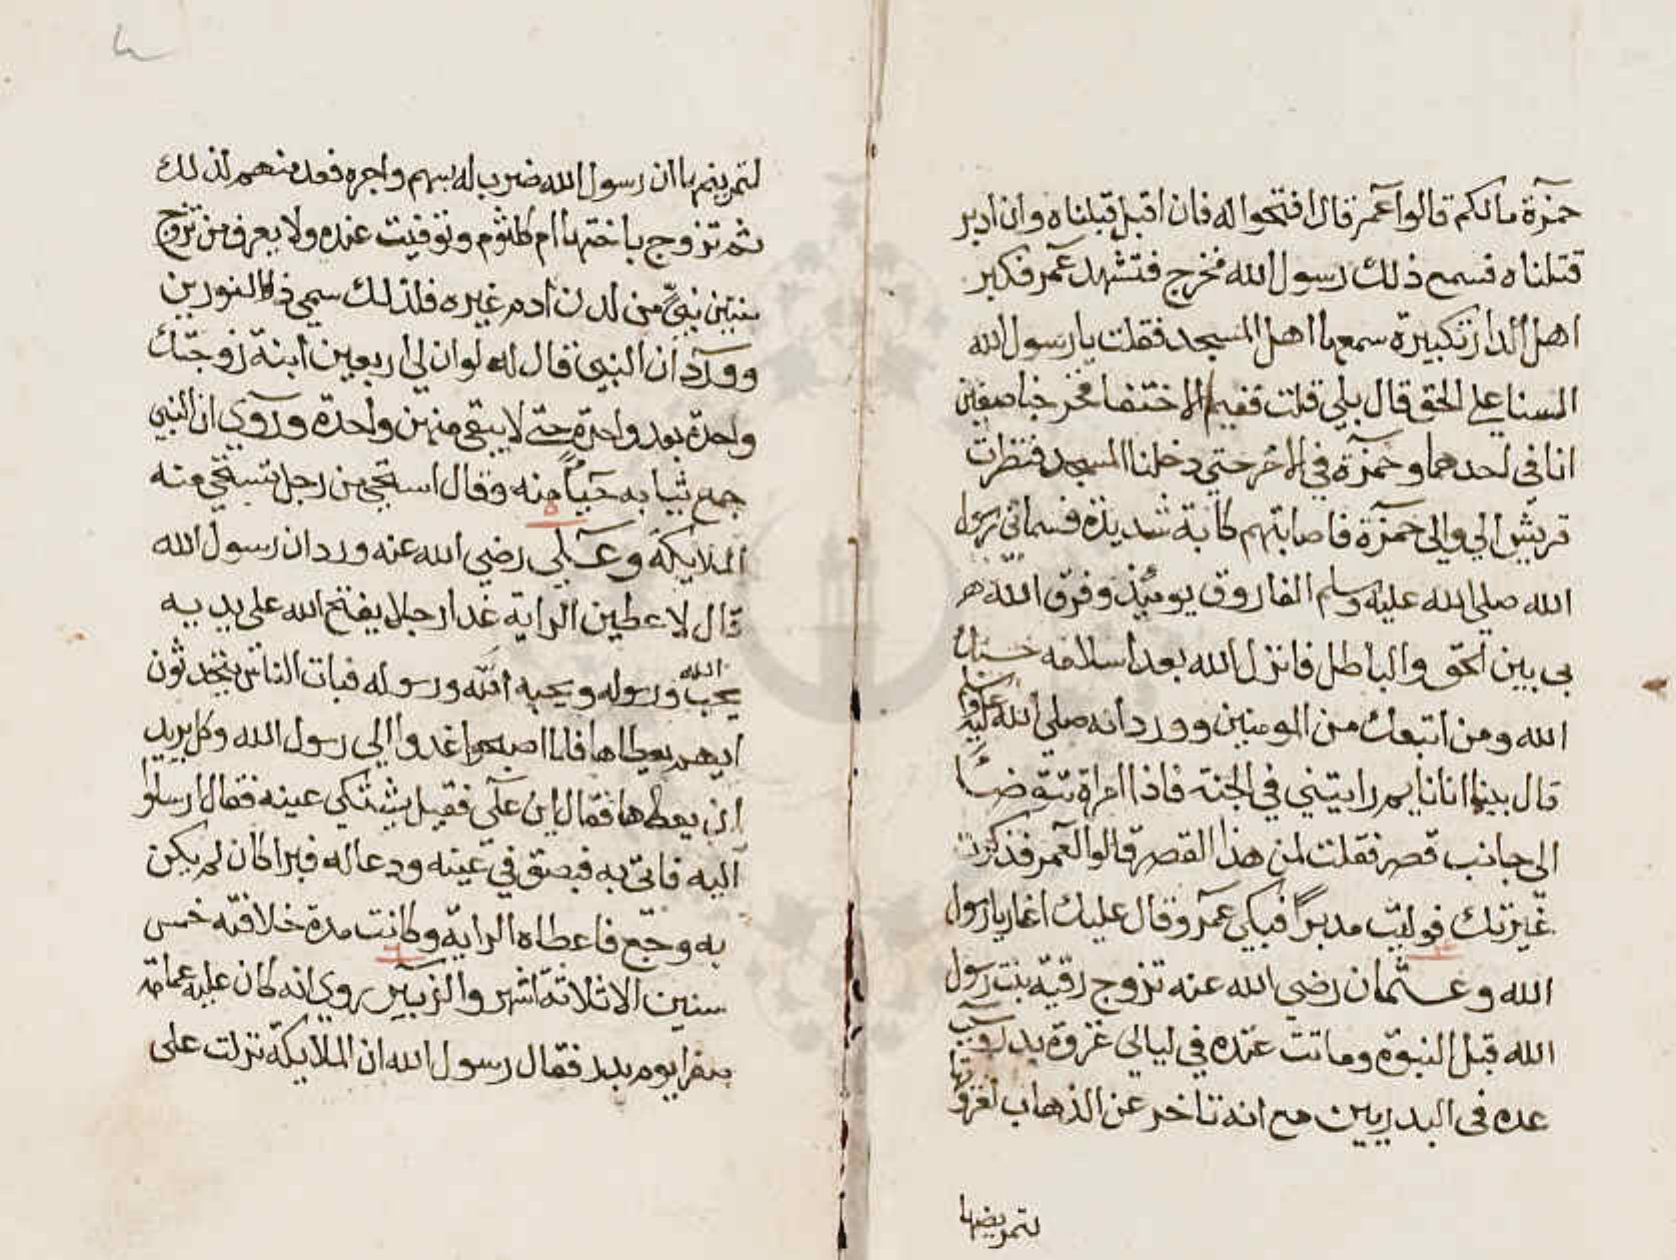 حمزة مالكم قالوا عمر قال افتحوا له فان اقبل قبلناه وان ادبر
قتلناه فسمع ذلك رسول الله فخرج فتشهد عمر فكبر
اهل الدار تكبيرة سمعها اهل المسجد فقلت يا رسول الله
السنا على الحق قال بلى قلت ففيم الاختفا فخرجنا صفين
انا في احدهما وحمزة في الاخر حتى دخلنا المسجد فنظرت
قريش الي والى حمزة فاصابتهم كابة شديدة فسماني رسول
الله صلى الله عليه وسلم الفاروق يومئذ وفرق الله
بي بين الحق والباطل فانزل الله بعد اسلامه حسبك
الله ومن اتبعك من المومنين وورد انه صلى الله عليه وسلم
قال بينما انا نايم رايتني في الجنة فاذا امراة تتوضا
الى جانب قصر فقلت لمن هذا القصر قالوا لعمر فذكرت
غيرتك فوليت مدبرا فبكى عمر وقال عليك اغار يا رسول
الله وعثمان رضي الله عنه تزوج رقية بنت رسول
الله قبل النبوة وماتت عنده في ليالي غزوة بدر
عده في البدريين مع انه تاخر عن الذهاب لغزوتها
لتمريضها
لتمريضها بان رسول الله ضرب له بسهم واجره فعد منهم لذلك
ثم تزوج باختها ام كلثوم وتوفيت عنده ولا يعرف من تزوج
بنتين نبي من لدن ادم غيره فلذلك سمي ذا النورين
وورد ان النبي قال له لو ان لي اربعين ابنة زوجتك
واحدة بعد واحدة حتى لا يبقى منهن واحدة وروي ان النبي
جمع ثيابه حياً منه وقال استحي من رجل تستحي منه
الملايكة وعلي رضي الله عنه ورد ان رسول الله
قال لاعطين الراية غدا رجلا يفتح الله على يديه
يحب الله ورسوله ويحبه الله ورسوله فبات الناس يتحدثون
ايهم يعطاها فلما اصبحوا غدوا الى رسول الله وكل يريد
ان يعطاها فقال اين علي فقيل يشتكي عينه فقال ارسلوا
اليه فاتى به فبصق في عينه ودعا له فبرا كان لم يكن
به وجع فاعطاه الراية وكانت مدة خلافته خمس
سنين الا ثلاثة اشهر والزبير روي انه كان عليه عمامة
صفرا يوم بدر فقال رسول الله ان الملايكة نزلت على